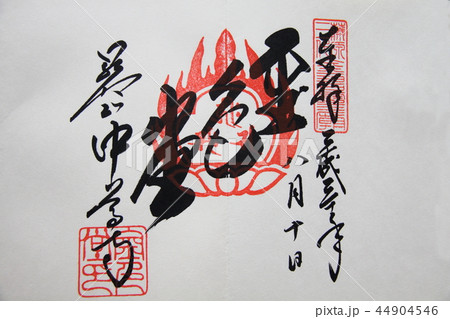 奉拝
平成三十年
八月十日
金色堂
関山中尊寺
44904546